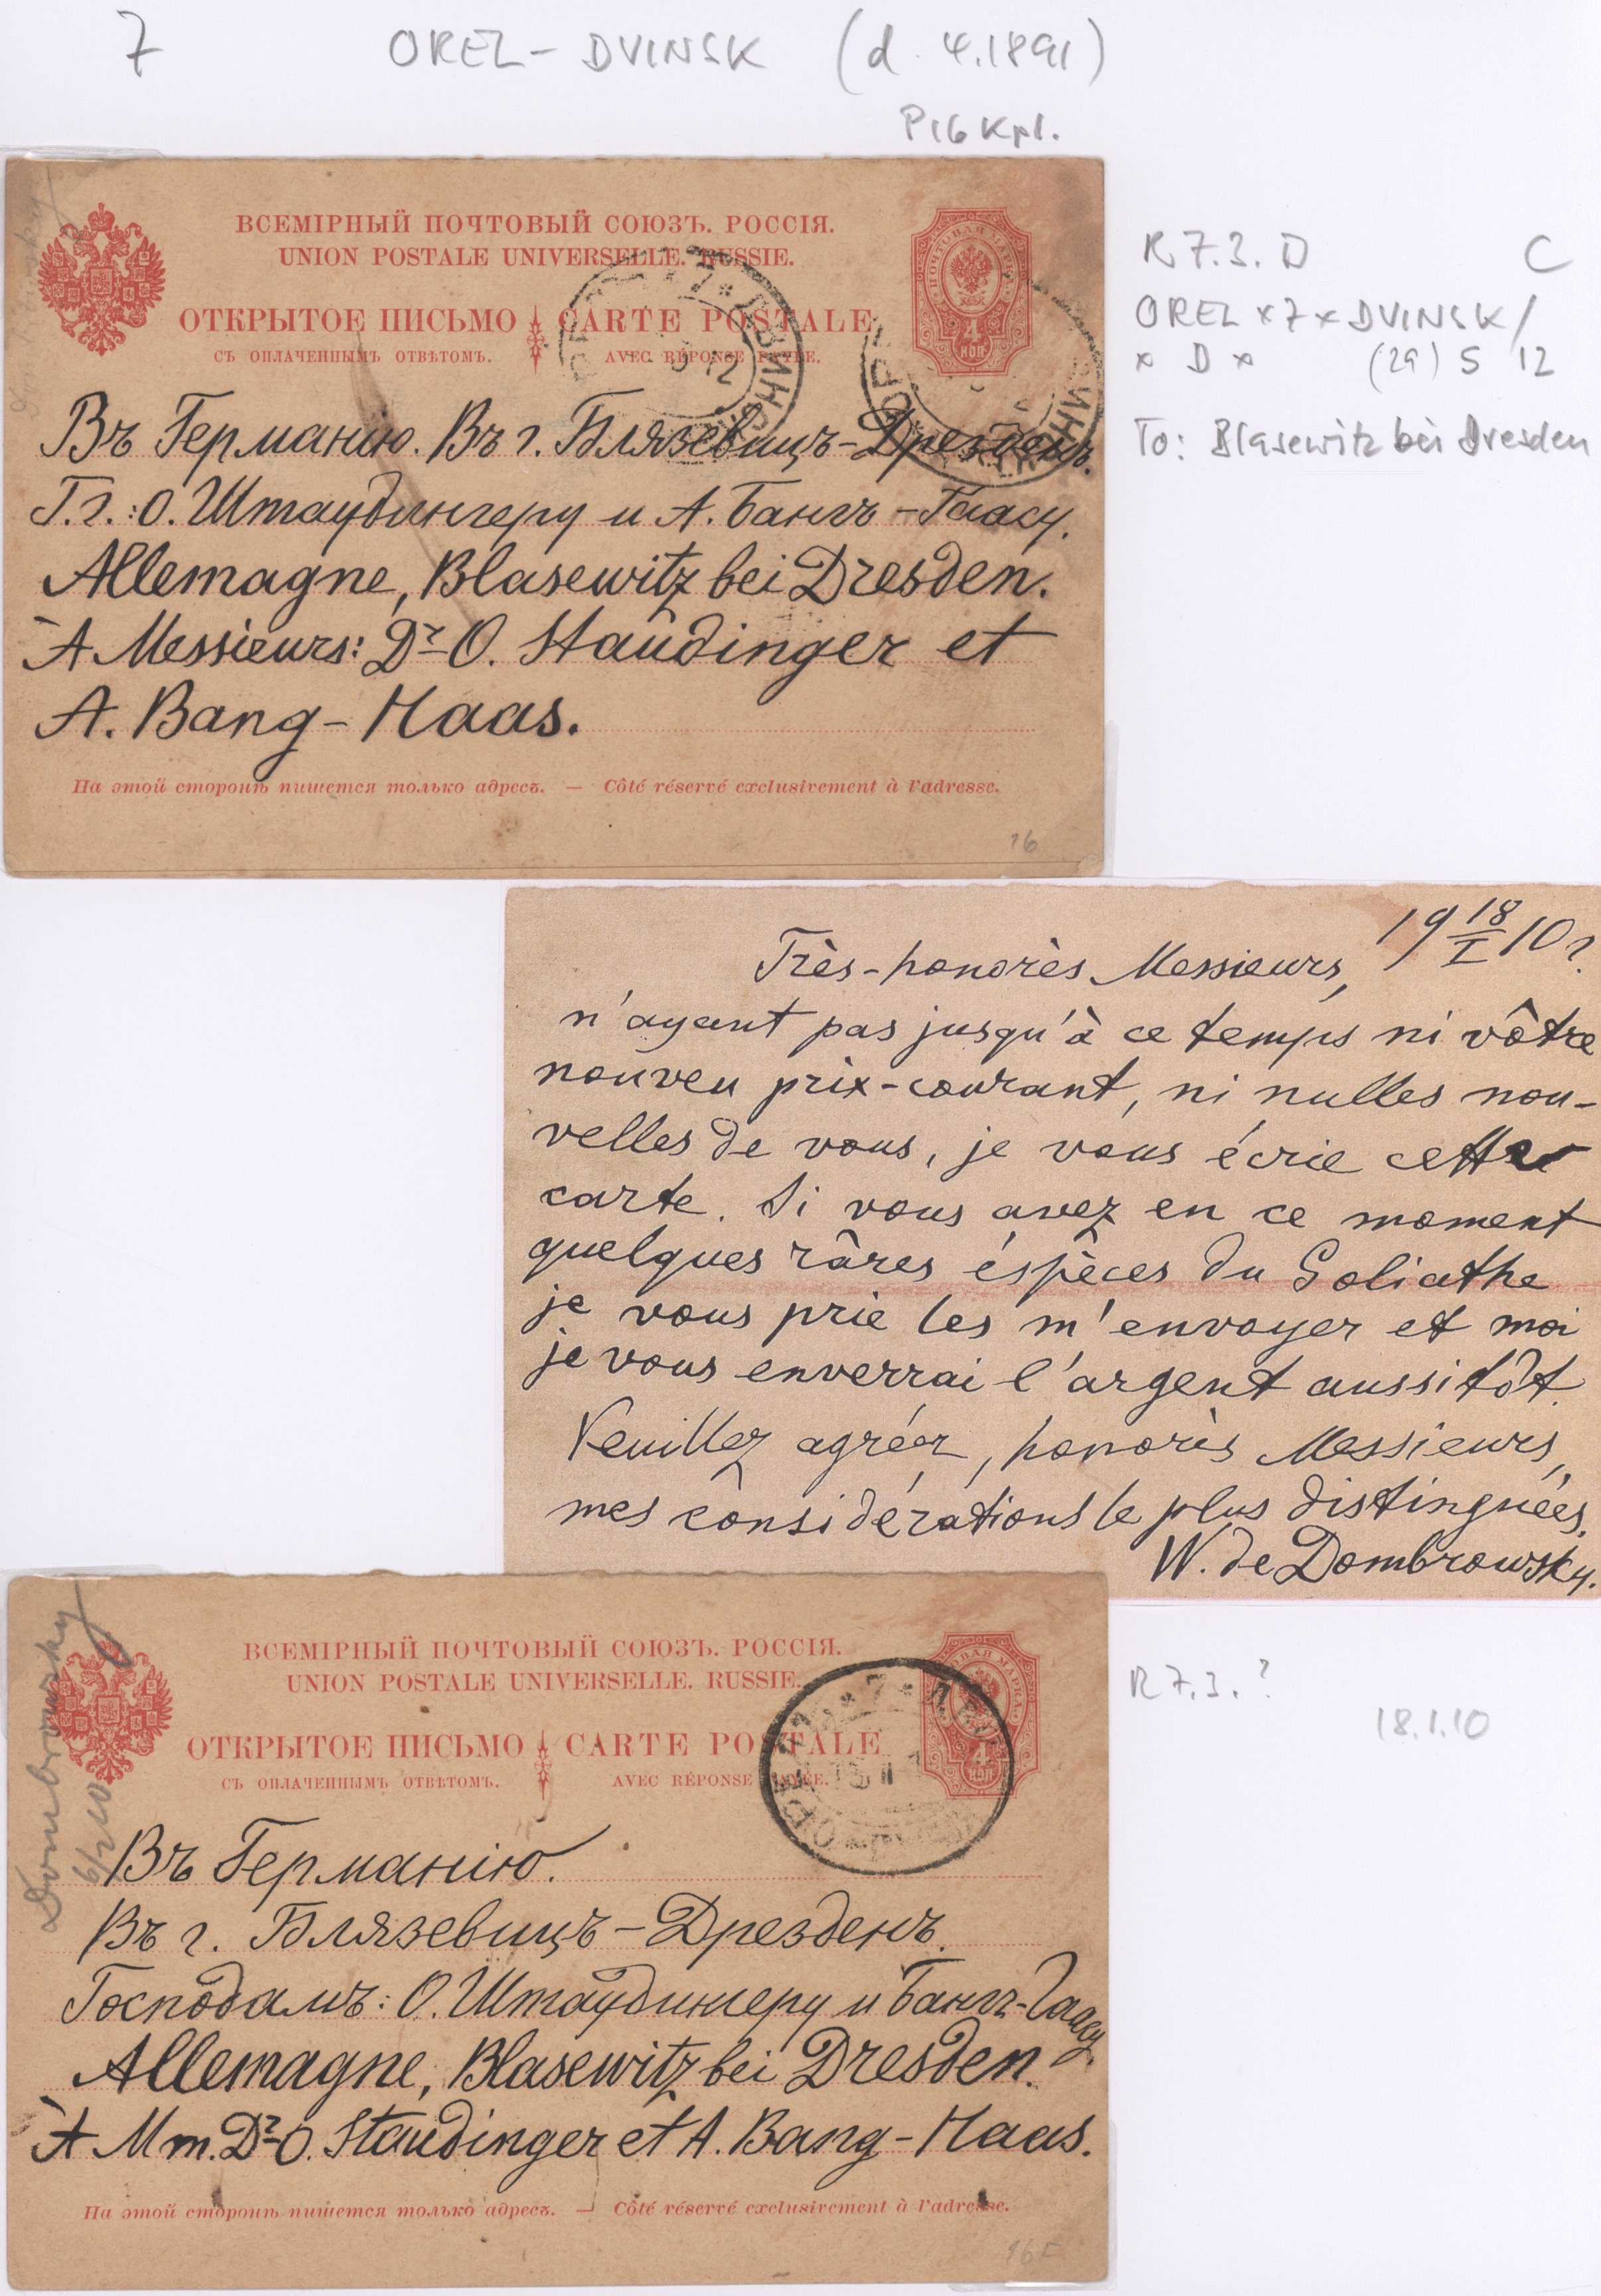 7 OREL - DVINSK (d. 4.1891)
P16 Kpl.
ВСЕМІРНЫЙ ПОЧТОВЫЙ СОЮЗЪ. РОССІЯ.
UNION POSTALE UNIVERSELLE. RUSSIE.
ОТКРЫТОЕ ПИСЬМО CARTE POSTALE
СЪ ОПЛАЧЕННЫМЪ ОТВѢТОМЪ. AVEC RÉPONSE PAYÉE.
ПОЧТОВАЯ МАРКА
4
КОП
Въ Германію. Въ г. Блязевицъ-Дрезденъ.
Г.г.: О. Штаудингеру и А. Бангъ-Гаасу.
Allemagne, Blasewitz bei Dresden.
À Messieurs: Dr O. Staudinger et
A. Bang-Haas.
На этой сторонѣ пишется только адресъ. — Côté réservé exclusivement à l'adresse.
16
R 7.3. D C
OREL x 7 x DVINSK /
x D x (29) 5 12
To: Blasewitz bei Dresden
19 18/I 10 г.
Très-honorès Messieurs,
n'ayant pas jusqu'à ce temps ni vôtre
nouveu prix-courant, ni nulles nou-
velles de vous, je vous écrie cette
carte. Si vous avez en ce moment
quelques râres éspèces du Goliathe
je vous prie les m'envoyer et moi
je vous enverrai l'argent aussitôt.
Veuillez agréer, honorès Messieurs,
mes considérations le plus distinguées.
W. de Dombrowsky.
R 7.3. ?
18.1.10
Dombrowsky
6/2 10
ВСЕМІРНЫЙ ПОЧТОВЫЙ СОЮЗЪ. РОССІЯ.
UNION POSTALE UNIVERSELLE. RUSSIE.
ОТКРЫТОЕ ПИСЬМО CARTE POSTALE
СЪ ОПЛАЧЕННЫМЪ ОТВѢТОМЪ. AVEC RÉPONSE PAYÉE.
4
КОП
Въ Германію.
Въ г. Блязевицъ-Дрезденъ.
Господамъ: О. Штаудингеру и Бангъ-Гаасу.
Allemagne, Blasewitz bei Dresden.
À Mm. Dr O. Staudinger et A. Bang-Haas.
На этой сторонѣ пишется только адресъ. — Côté réservé exclusivement à l'adresse.
16F